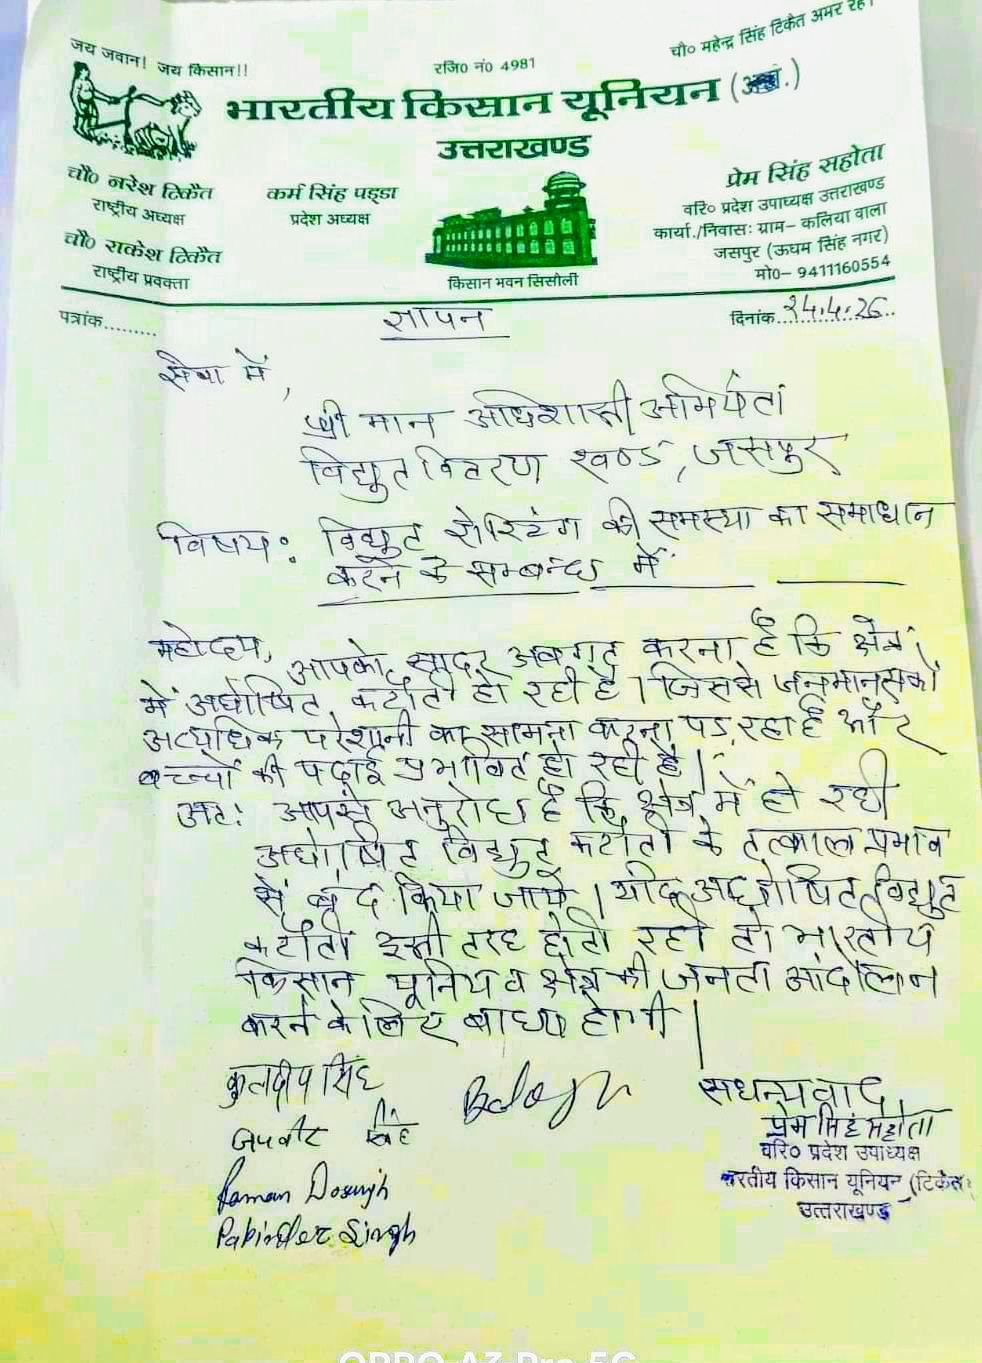 जय जवान! जय किसान!!
रजि0 नं0 4981
चौ० महेन्द्र सिंह टिकैत अमर रहे।
भारतीय किसान यूनियन
उत्तराखण्ड
चौ० नरेश टिकैत
राष्ट्रीय अध्यक्ष
चौ० राकेश टिकैत
राष्ट्रीय प्रवक्ता
कर्म सिंह पड्डा
प्रदेश अध्यक्ष
किसान भवन सिसौली
प्रेम सिंह सहोता
वरि० प्रदेश उपाध्यक्ष उत्तराखण्ड
कार्या./निवासः ग्राम– कलिया वाला
जसपुर (ऊधम सिंह नगर)
मो0– 9411160554
पत्रांक.........
ज्ञापन
दिनांक 24.4.26
सेवा में,
श्री मान अधिशासी अभियंता
विद्युत वितरण खण्ड, जसपुर
विषय: विद्युत रोस्टिंग की समस्या का समाधान
करने के सम्बन्ध में
महोदय, आपको सादर अवगत करना है कि क्षेत्र
में अघोषित कटौती हो रही है। जिससे जनमानस को
अत्यधिक परेशानी का सामना करना पड़ रहा है और
बच्चों की पढाई प्रभावित हो रही है।
अत: आपसे अनुरोध है कि क्षेत्र में हो रही
अघोषित विद्युत कटौती के तत्काल प्रभाव
से बंद किया जाये। यदि अघोषित विद्युत
कटौती इसी तरह होती रही तो भारतीय
किसान यूनिय व क्षेत्र की जनता आंदोलन
करने के लिए बाध्य होगी।
कुलदीप सिंह
सधन्यवाद
प्रेम सिंह सहोता
वरि० प्रदेश उपाध्यक्ष
भारतीय किसान यूनियन (टिकैत)
उत्तराखण्ड
सिंह
Raman Dosanjh
Palvinder Singh
OPPO A7 Pro 5G